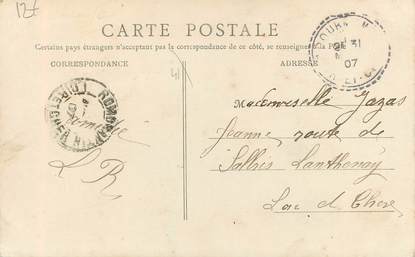 12f
CARTE POSTALE
Certains pays étrangers n'acceptant pas la correspondance de ce côté, se renseigner à la Poste
CORRESPONDANCE
ADRESSE
31
07
ROMORANTIN
Mademoiselle Jazas
Jeanne route de
Salbris Lanthenay
Loc d Cher
L R